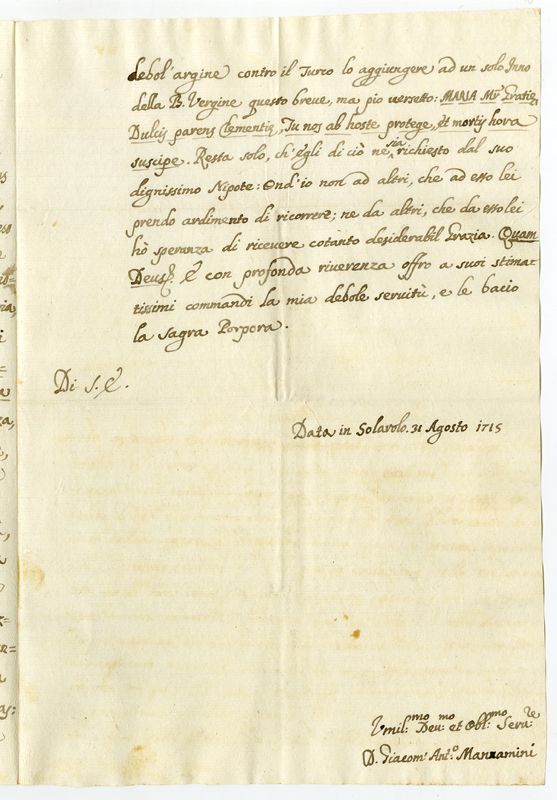 debol' argine contro il Turco lo aggiungere ad un solo Inno
della B. Vergine questo breve, ma pio versetto: MARIA Mr̃ Gratie,
Dulcis parens Clementie, Tu nos ab hoste protege, et mortis hora
suscipe. Resta solo, ch'egli di ciò ne sia richiesto dal suo
dignissimo Nipote: Ond'io non ad altri, che ad esso lei
prendo ardimento di ricorrere; ne da altri, che da esso lei
hò speranza di ricevere cotanto desiderabil Grazia. Quam
Deus &. E con profonda riverenza offro a suoi stima=
tissimi commandi la mia debole servitù, e le bacio
la sagra Porpora.
Di S. E.
Data in Solarolo. 31 Agosto 1715
Vmil:mo Deu:mo et Obl:mo Serv:re
D. Giacom' Ant.o Manzamini